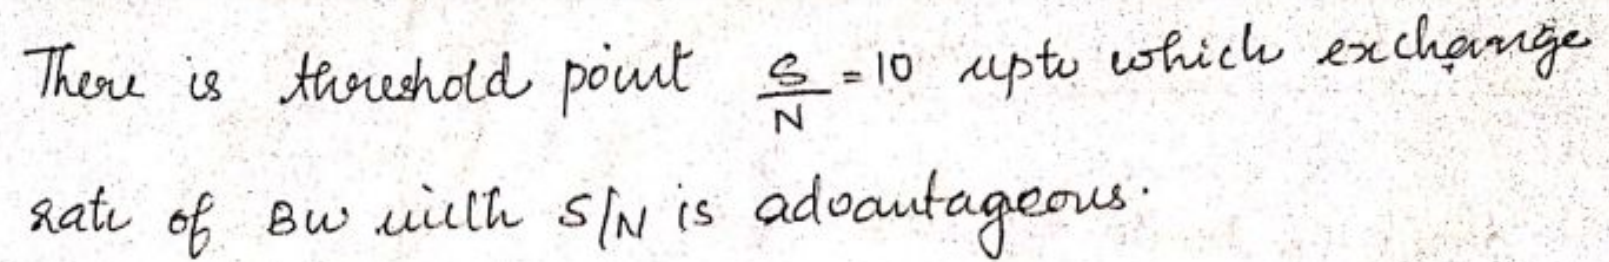 There is threshold point S/N = 10 upto which exchange
rate of BW with S/N is advantageous.